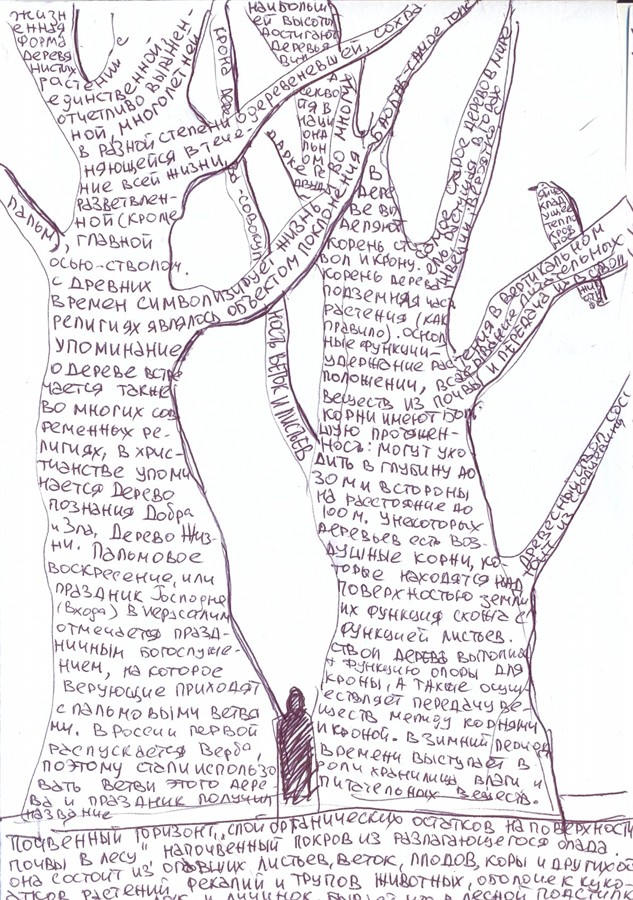 жизн
енная
форма
деревя
нистых
растений с
единственной
отчетливо выражен-
ной, многолетней,
в разной степени одеревеневшей, сохра
няющейся в тече-
ние всей жизни,
разветвлен-
ной (кроме
пальм),
главной
осью-стволом.
с древних
времен символизирует жизнь
религиях являлось объектом поклонения во многих
упоминание
о дереве встре
чается также
во многих сов
ременных ре-
лигиях, в хрис-
тианстве упоми
нается Дерево
познания Добра
и Зла, Дерево Жиз-
ни. Пальмовое
воскресение, или
праздник Господне
(Входа) в Иерусалим
отмечается празд-
ничным богослуже-
нием, на которое
верующие приходят
с пальмовыми ветвя
ми. В России первой
распускается Верба,
поэтому стали использо
вать ветви этого дере
ва и праздник получил
название
крона
совокуп
ность веток и листьев
наибольш
ей высоты
достигают
деревья
секво
йя в
наци
она
льн
ом
парке
в
дере
ве вы
деляют
корень ст
вол и крону.
корень дерева
подземная час
растения (как
правило). основ
ные функции-
удержание растения в вертикальном
положении, всасывание питательных
веществ из почвы и передача их в ствол
корни имеют бол
шую протяжен-
ность: могут ухо
дить в глубину до
30 м и в стороны
на расстояние до
100 м. У некоторых
деревьев есть воз-
душные корни, ко-
торые находятся над
поверхностью земли
их функция схожа с
функцией листьев.
ствол дерева выполня
т функцию опоры для
кроны, а также осущ-
ествляет передачу ве-
ществ между корнями
и кроной. В зимний период
времени выступает в
роли хранилища влаги и
питательных веществ.
самое старое дерево в мире
ель, растущая в
Швеции
яйца
клад
ущее
тепло
кров
ное
жи
древесный ствол сос
тоит из сердцевины
почвенный горизонт, слой органических остатков на поверхности
почвы в лесу, напочвенный покров из разлагающегося опада.
она состоит из опавших листьев, веток, плодов, коры и других ос
атков растений фекалий и трупов животных, оболоче к куко-
лок и личинок. в лесной подстилк